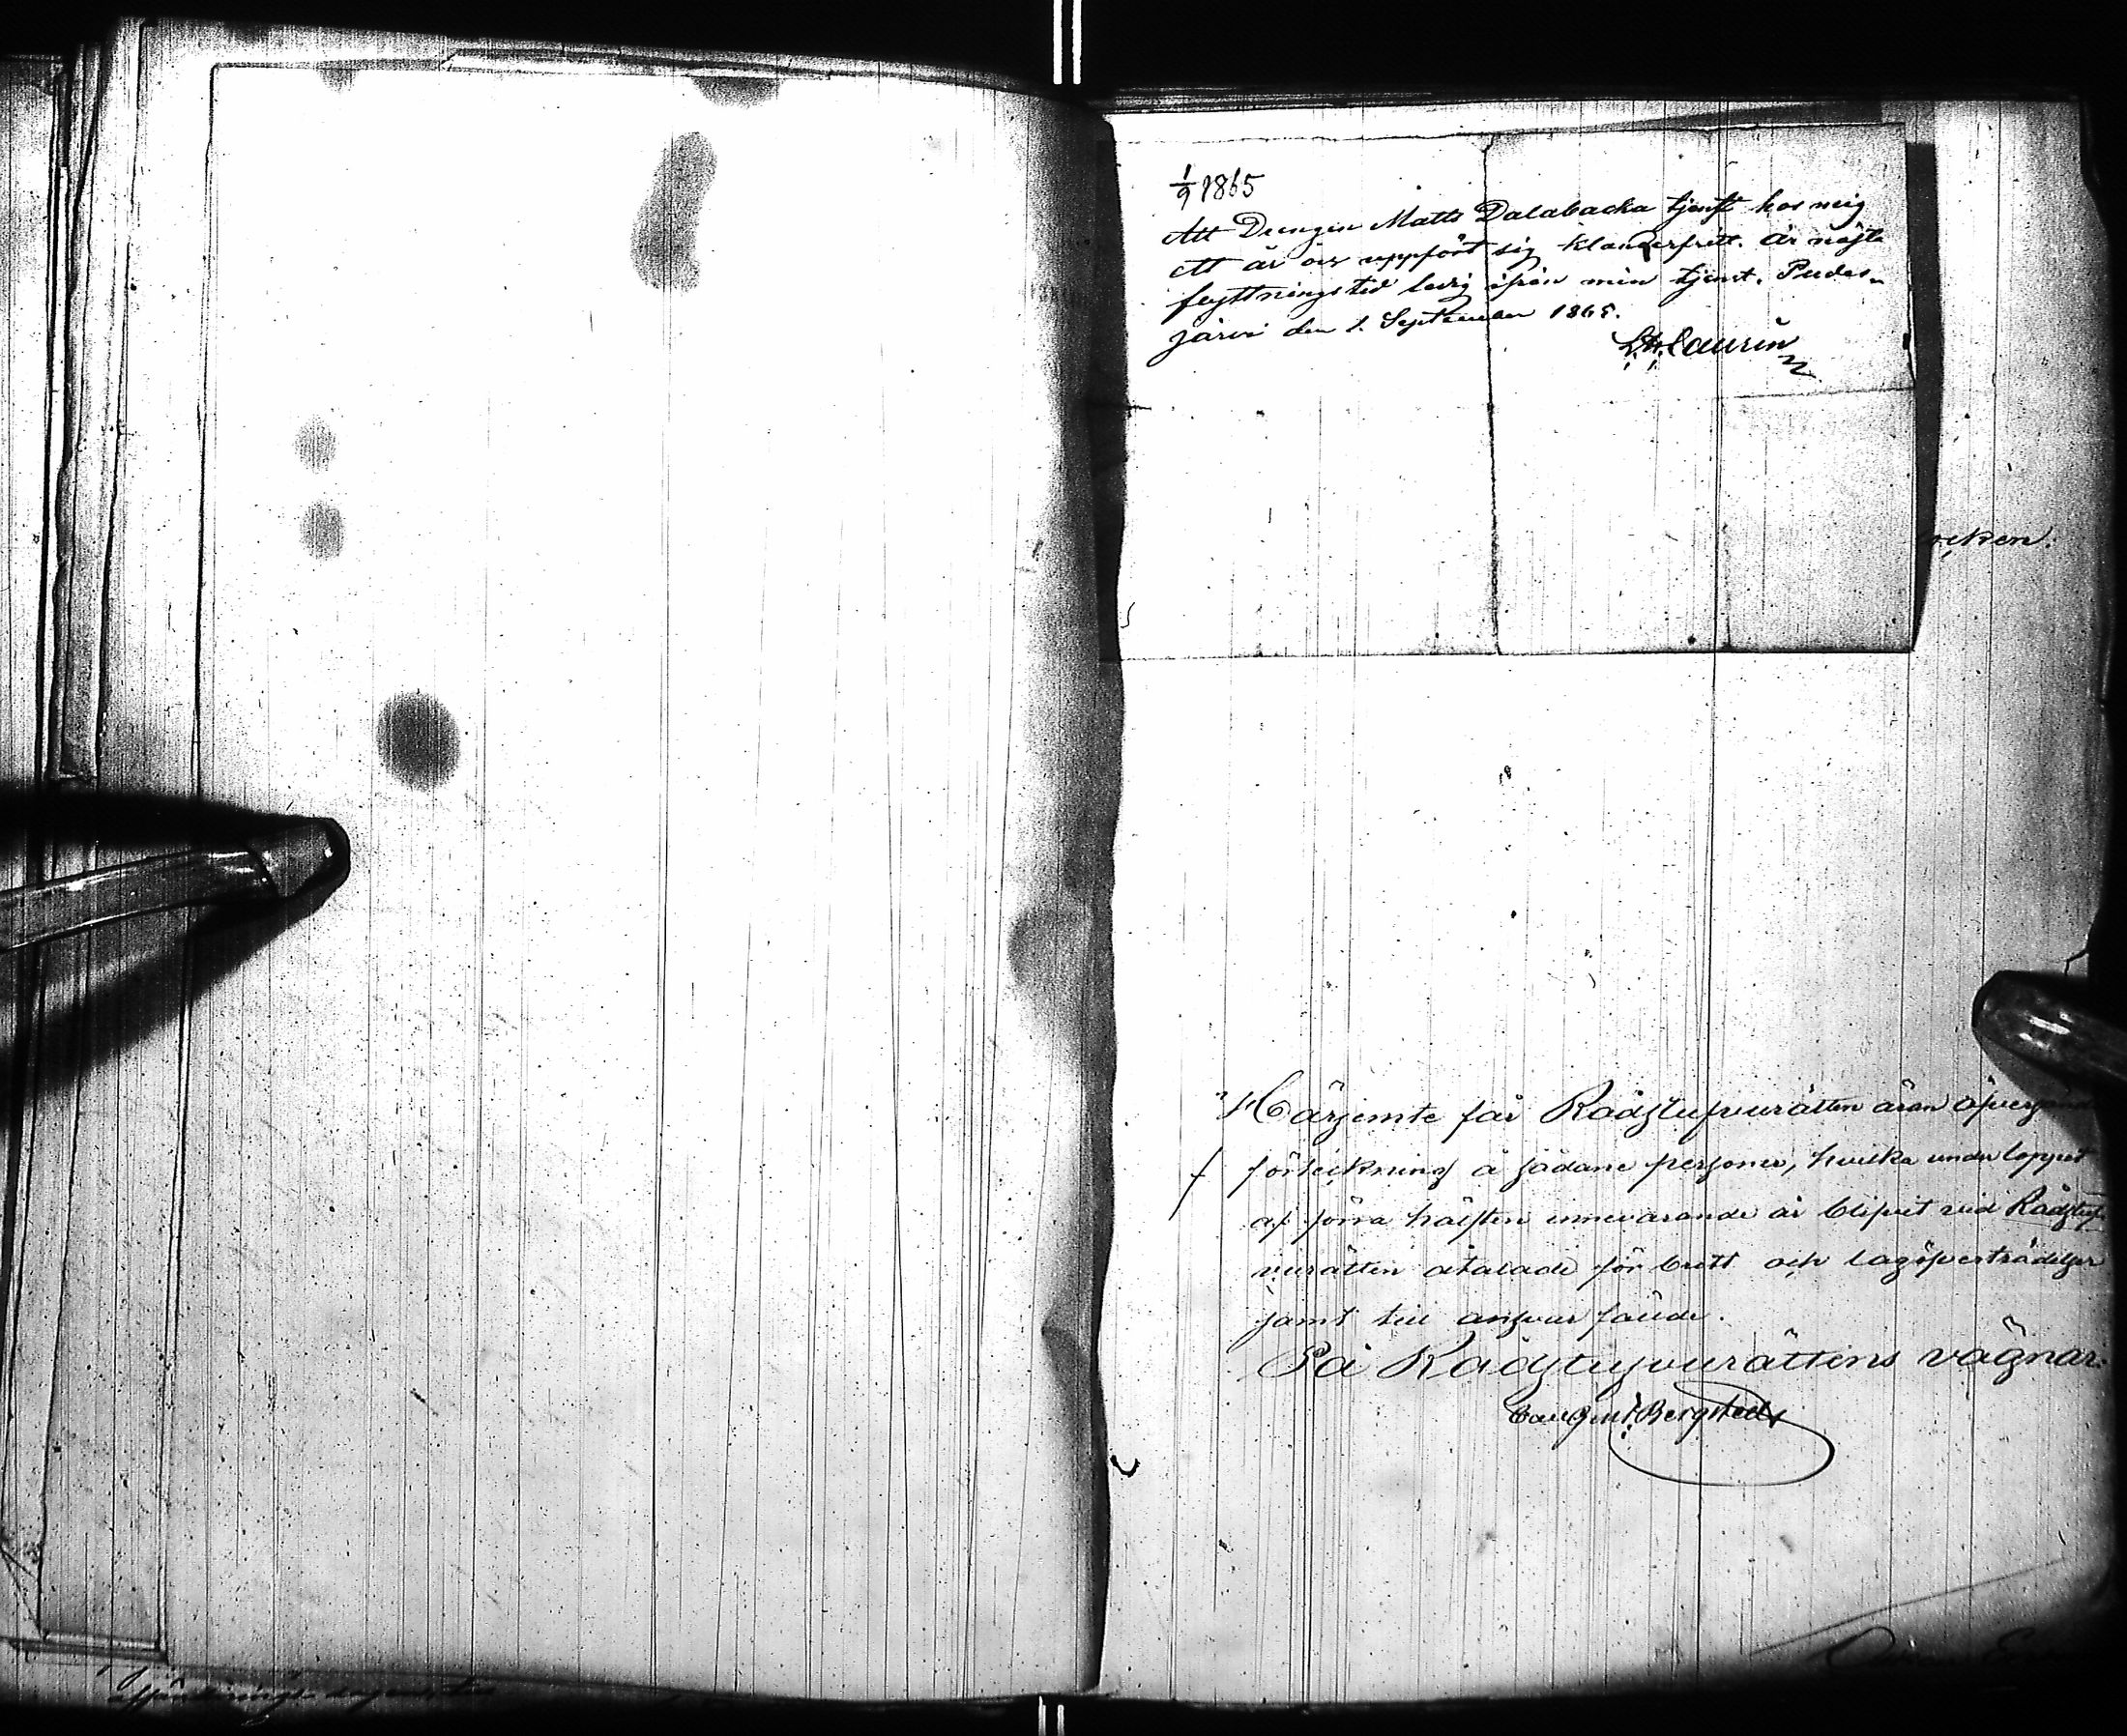 1/9 1865
Att Drengen Matts Dalabacka tjenst hos mig
ett år och uppfört sig klanderfritt. är nästa
flyttningstid ledig ifrån min tjenst. Pudas-
järvi den 1. September 1865.
Laurin
ocken.
Härjemte får Rådstufvurätten äran öfversända
förteckning å sådane personer, hvilka under loppet
af förra hälften innevarande år blifvit vid Rådstuf-
vurätten åtalade för brott och lagöfverträdelser
samt till ansvar fällde.
På Rådstufvurättens vägnar:
Bergstedt